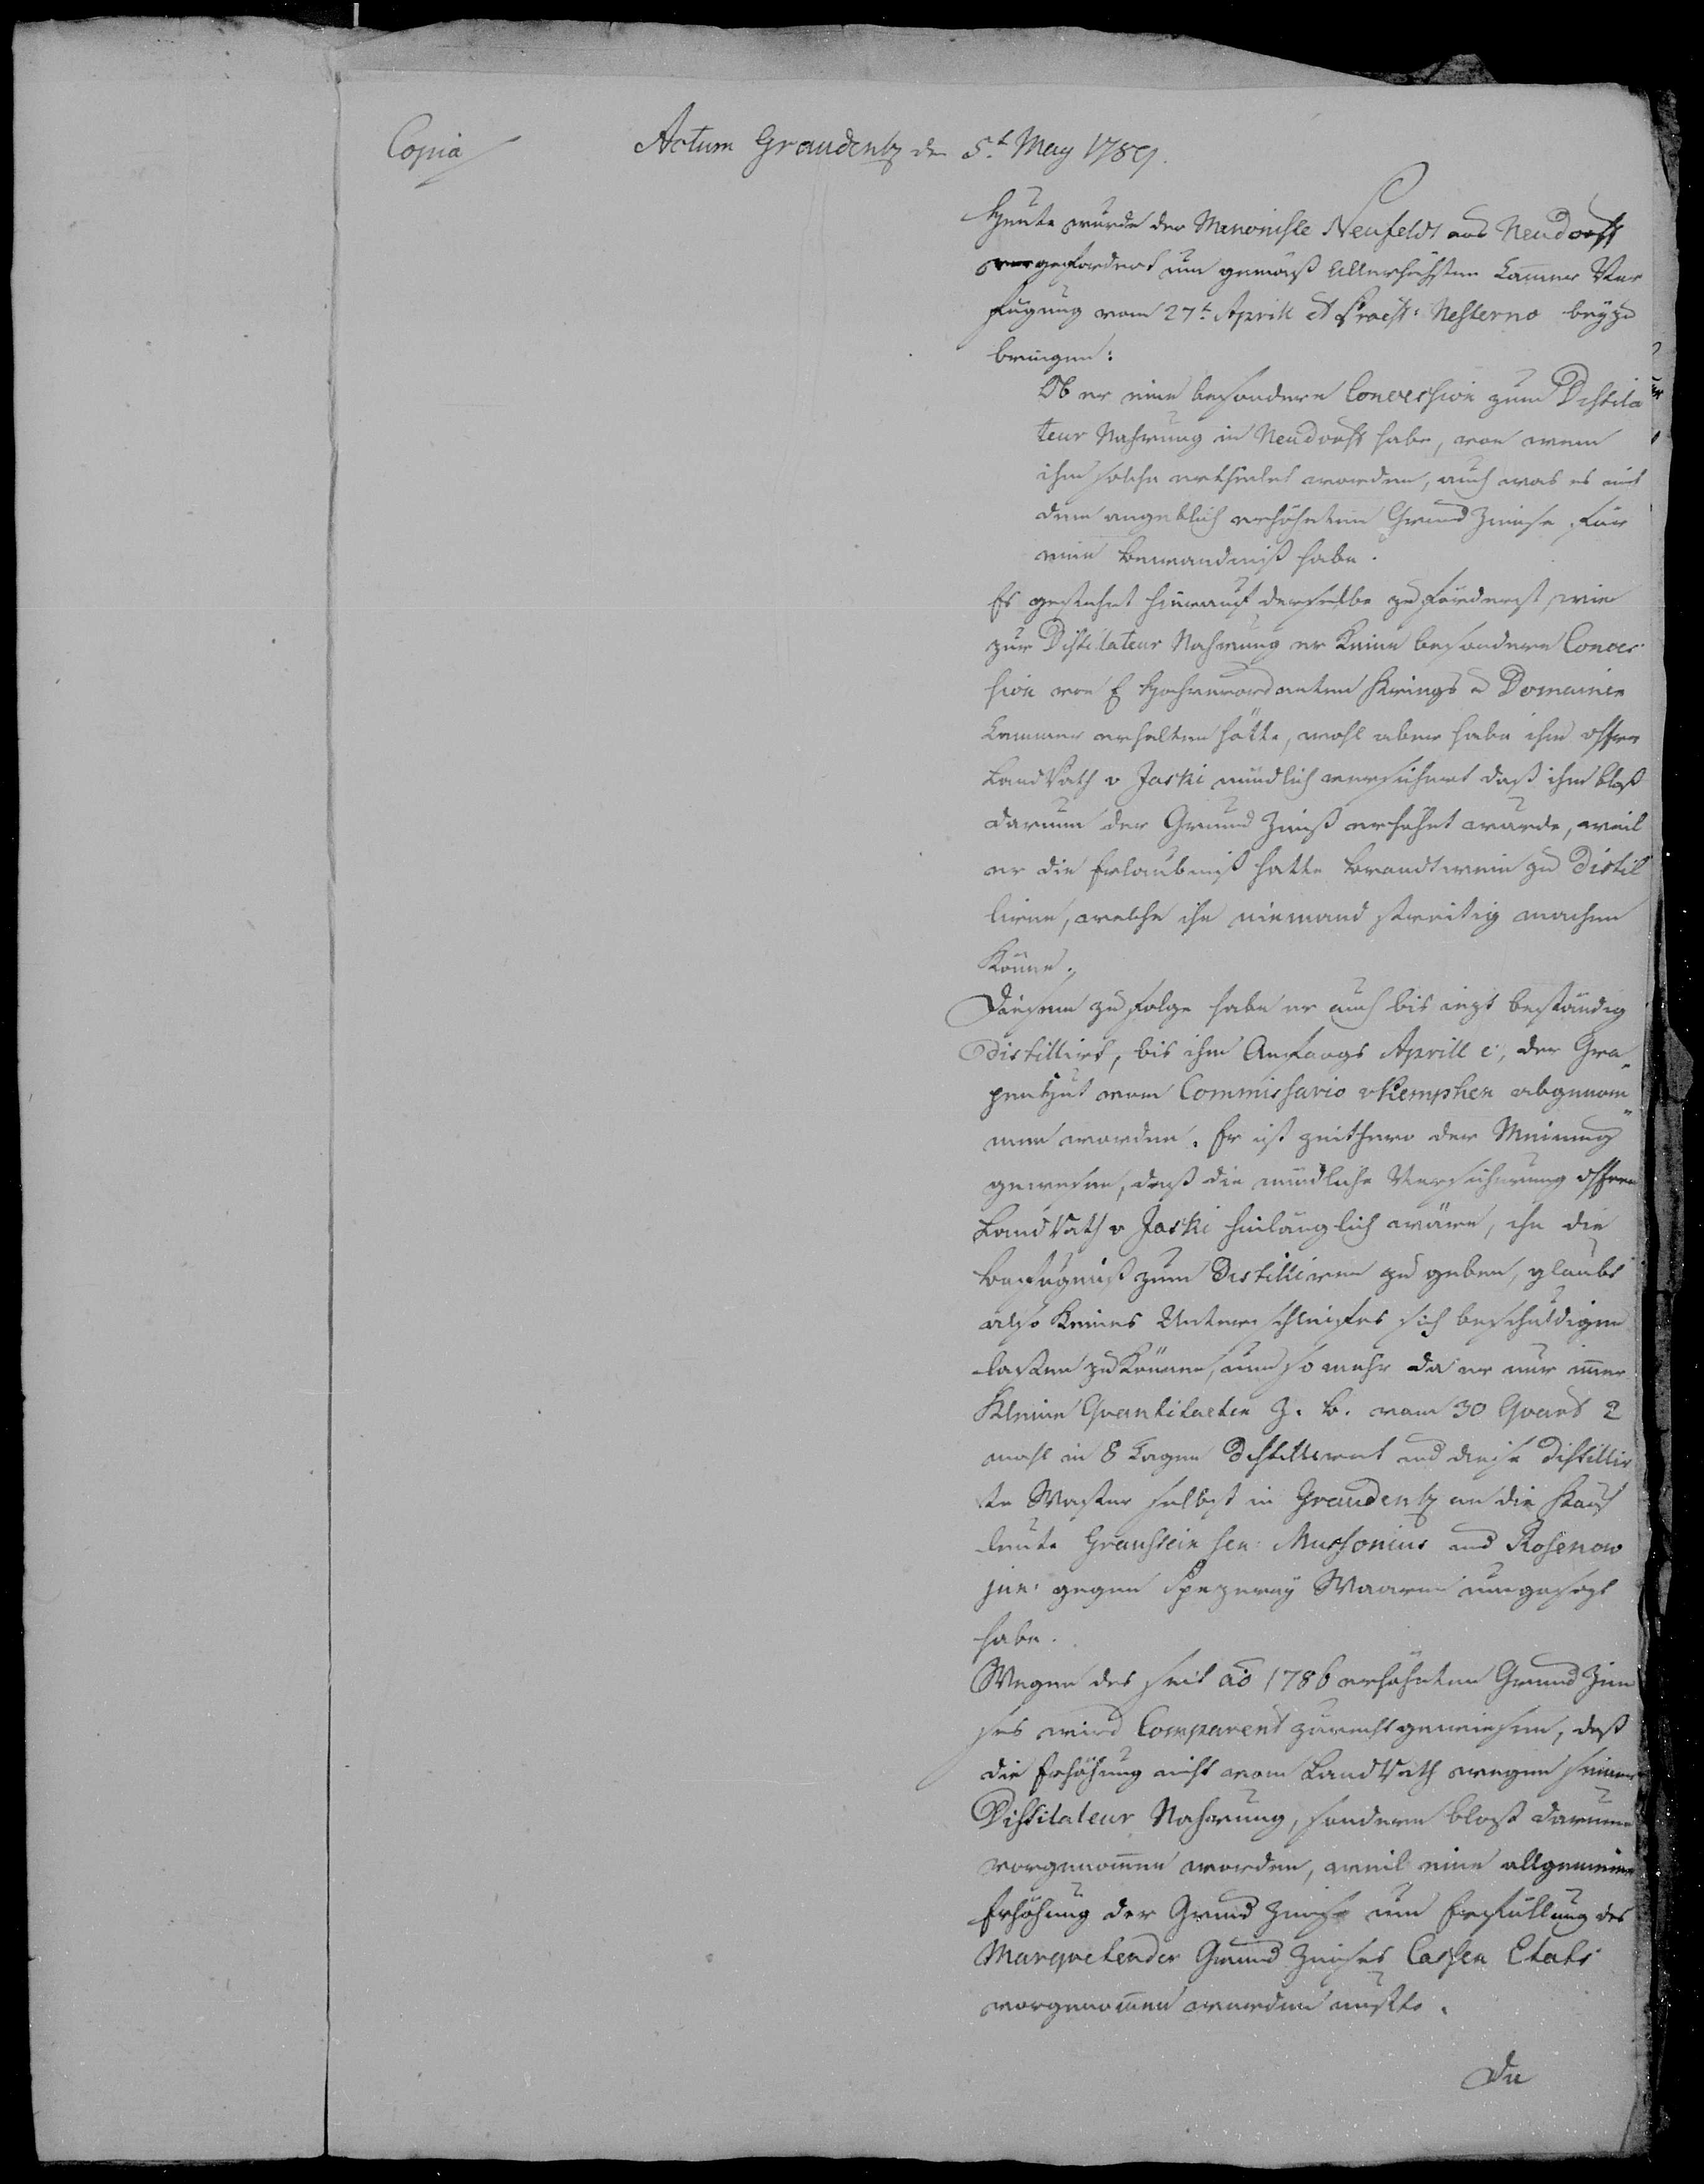 Copia
Actum Graudentz den 5.t May 1789.
Heute wurde der Menoniste Neufeldt aus Neudorff
vorgefordert um gemäß Allerhöchsten Cammer Ver
fügung vom 27.t Aprill et Praest: hesterno beyzu
bringen:
Ob er eine besondere Concession zum Distila
teur Nahrung in Neudorff habe, von wem
ihm solche ertheilet worden, auch was es mit
dem angeblich erhöheten Grund Zinse für
eine Bewandniß habe.
Es gestehet hierauf derselbe zuförderst, wie
zur Distilateur Nahrung er keine besondere Conces
sion von E Hochverordneten Kriegs u Domainen
Cammer erhalten hätte, wohl aber habe ihm
LandRath v Jaski mündlich versichert daß ihm bloß
darum der Grund Zinß erhöhet wurde, weil
er die Erlaubniß hatte Brandtwein zu distil
liren, welche ihm niemand streitig machen
könne.
Diesem zufolge habe er auch bis jezt beständig
distillirt, bis ihm Anfangs Aprill c., der Gra„
penhut vom Commissario v Kemphen abgenom„
men worden. Er ist zeithero der Meinung
gewesen, daß die mündliche Versicherung
LandRath v Jaski hinlänglich wäre, ihm die
Befugniß zum Distilliren zu geben, glaubt
also keines Unterschleifes sich beschuldigen
lassen zu können, um so mehr da er nur immer
kleine Quantitaeten z. B. vom 30 Quart 2
mahl in 8 Tagen distilliret und diese distillir
te Wasser selbst in Graudentz an die Kauf
leute Graustein sen: Mussonius und Rosenow
jun: gegen Spezerey Waaren umgesezt
habe.
Wegen des seit ao 1786 erhöheten Grund Zin
ses wird Comparent zurecht gewiesen, daß
die Erhöhung nicht vom LandRath wegen seiner
Distilateur Nahrung, sondern bloß darum
vorgenommen worden, weil eine allgemeine
Erhöhung der Grund Zinse um Erfüllung des
Marquetender Grund Zinses Cassen Etats
vorgenommen werden mußte.
Da